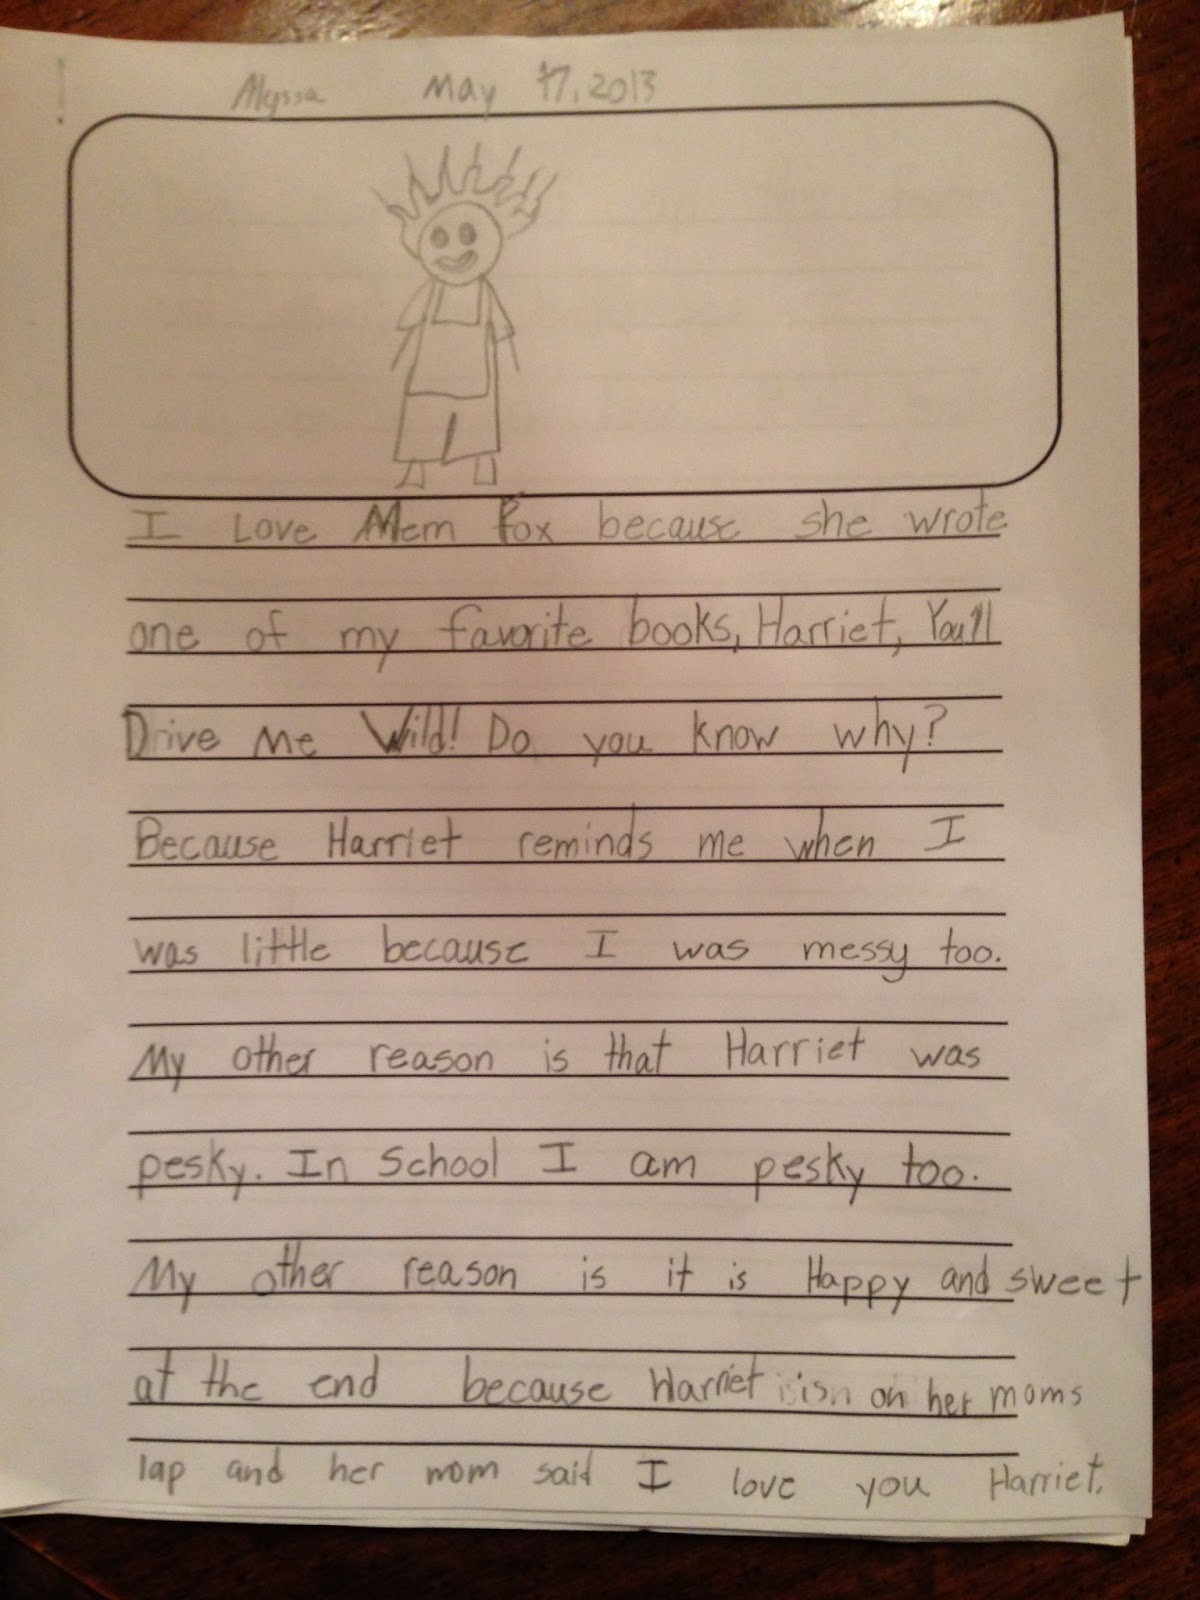 Alyssa May 17, 2013
I Love Mem Fox because she wrote
one of my favorite books, Harriet, You'll
Drive Me Wild! Do you know why?
Because Harriet reminds me when I
was little because I was messy too.
My other reason is that Harriet was
pesky. In School I am pesky too.
My other reason is it is Happy and sweet
at the end because Harriet on her moms
lap and her mom said I love you Harriet.